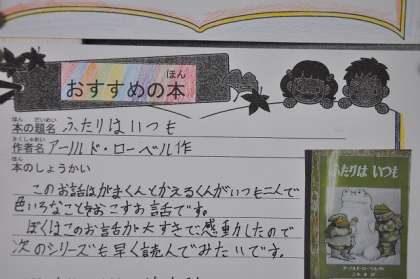 おすすめの本
ほん
本の題名 ふたりはいつも
ほん だいめい
作者名 アールルド・ローベル作
さくしゃめい
本のしょうかい
ほん
このお話はがまくんとかえるくんがいつも二人で
色いろなことをおこすお話です。
ぼくはこのお話が大すきで感動したので
次のシリーズも早く読んでみたいです。
ふたりは いつも